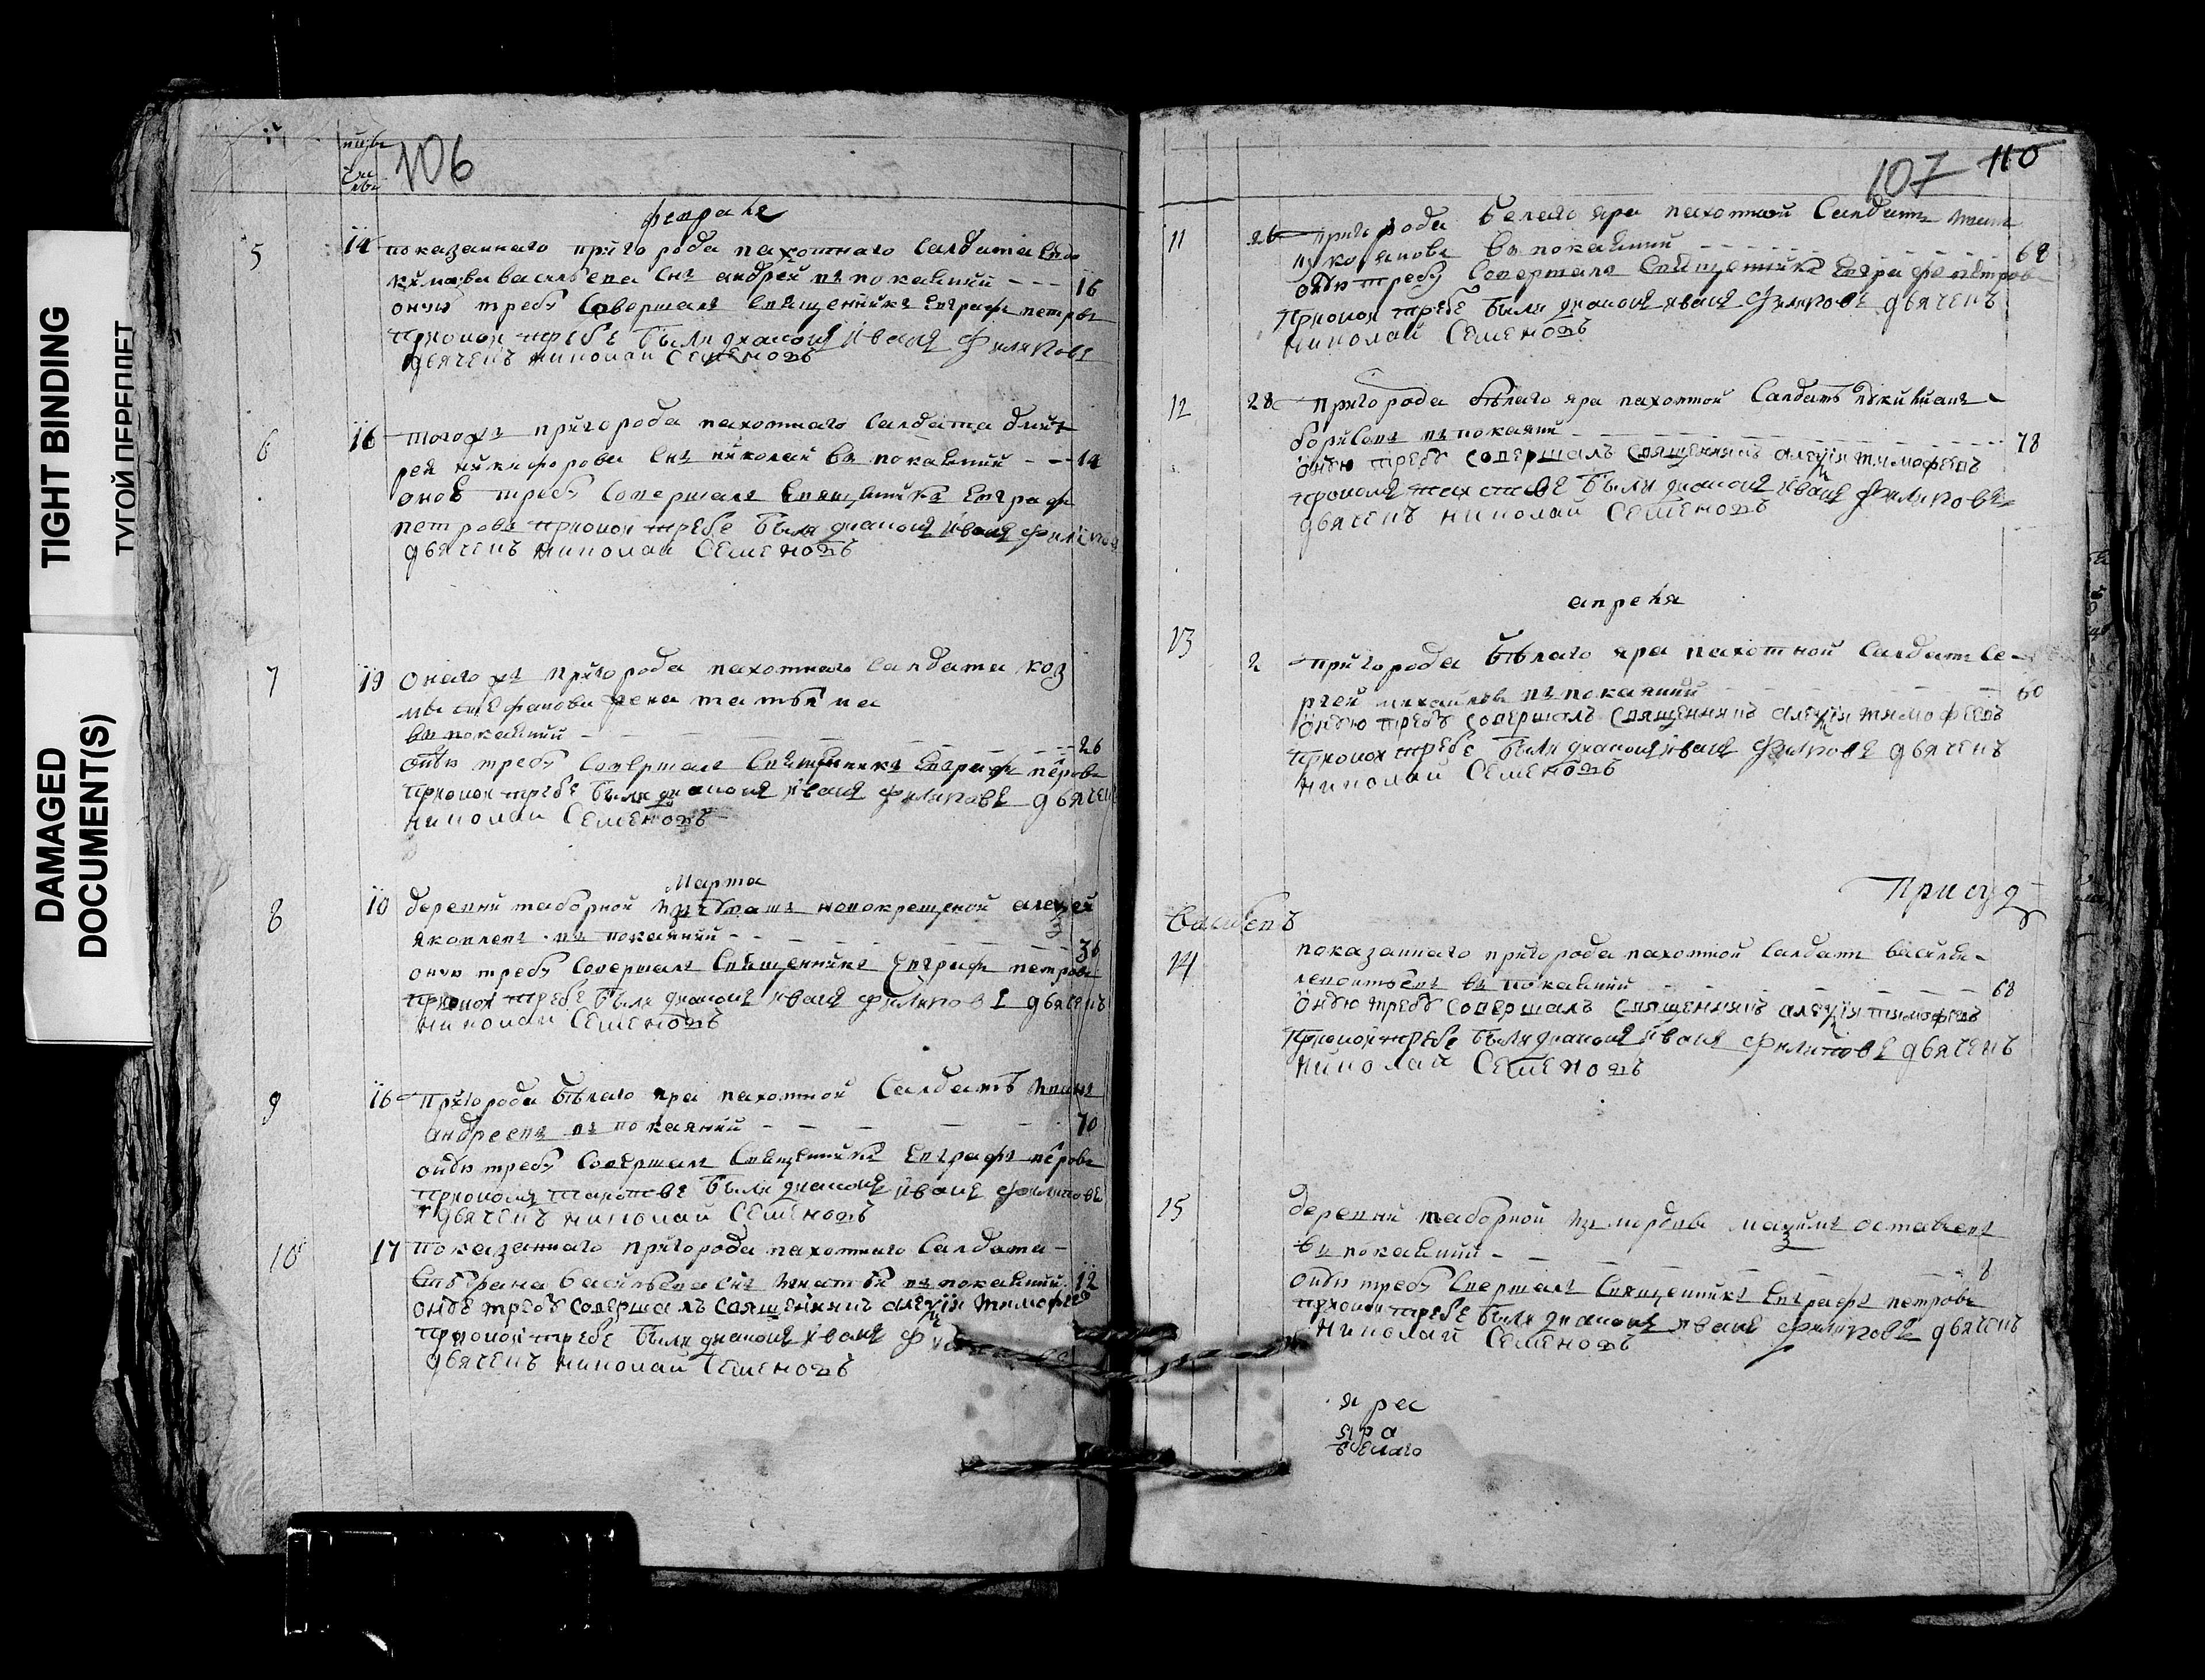 TIGHT BINDING
ТУГОЙ ПЕРЕПЛЕТ
DAMAGED
DOCUMENT(S)
106
февраля
5 14 показаннаго пригорода пахотнаго Салдата Евдо
кима васильева Снъ андрей въ покаянии 16
оную требу Совершалъ Священникъ Евграфъ петровъ
прионой требе были диаконъ иванъ филиповъ
дьячекъ николаи Семеновъ
6 16 тогожъ пригорода пахотнаго Салдата дмит
рея никифорова Снъ николай въ покаянии 14
оную требу Совершалъ Священникъ Евграфъ
петровъ прионой требе были диаконъ иванъ филипов
дьячекъ николаи Семеновъ
7 19 Онагожъ пригорода пахотнаго Салдата коз
мы стефанова жена татьяна
въ покаянии 26
оную требу Совершалъ Священникъ Евграфъ петровъ
прионой требе были диаконъ иванъ филиповъ дьячекъ
николаи Семеновъ
Марта
8 10 деревни таборной изъ чювашъ новокрещеной алексей
яковлевъ въ покаянии 36
оную требу Совершалъ Священникъ Евграфъ петровъ
прионой требе были диаконъ иванъ филиповъ дьячекъ
николаи Семеновъ
9 16 пригорода бѣлаго яра пахотной Салдатъ иванъ
андреевъ въ покаянии 70
оную требу Совершалъ Священникъ Евграфъ петровъ
были диаконъ иванъ филиповъ
дьячекъ николаи Семеновъ
10 17 показаннаго пригорода пахотнаго Салдата
Стефана васильева Снъ игнатей въ покаянии 12
оную требу совершалъ священникъ алеξiи тимофеев
прионой требе были диаконъ иванъ
дьячекъ николаи Семеновъ
107 110
11 26 пригорода белаго яра пахотной Салдатъ иванъ
лукояновъ въ покаянии 68
оную требу Совершалъ Священникъ Евграфъ петровъ
прионой требе были диаконъ иванъ филиповъ дьячекъ
николаи Семеновъ
12 28 пригорода бѣлаго яра пахотной Салдатъ
борисовъ въ покаянии 78
оную требу совершалъ священникъ алеξiи тимофеевъ
были диаконъ иванъ филиповъ
дьячекъ николаи Семеновъ
апреля
13 2 пригорода бѣлаго яра пахотной Салдатъ Се
ргей михайловъ въ покаянии 60
оную требу совершалъ священникъ алеξiи тимофеевъ
прионой требе были диаконъ иванъ филиповъ дьячекъ
николаи Семеновъ
14 показаннаго пригорода пахотной Салдатъ василей
леонтьевъ въ покаянии 68
оную требу совершалъ священникъ алеξiи тимофеевъ
прионой требе были диаконъ иванъ филиповъ дьячекъ
николаи Семеновъ
15 деревни таборной изъ мордвы маξимъ
въ покаянии 8
оную требу Совершалъ Священникъ Евграфъ петровъ
прионой требе были диаконъ иванъ филиповъ дьячекъ
николаи Семеновъ
яра
белаго